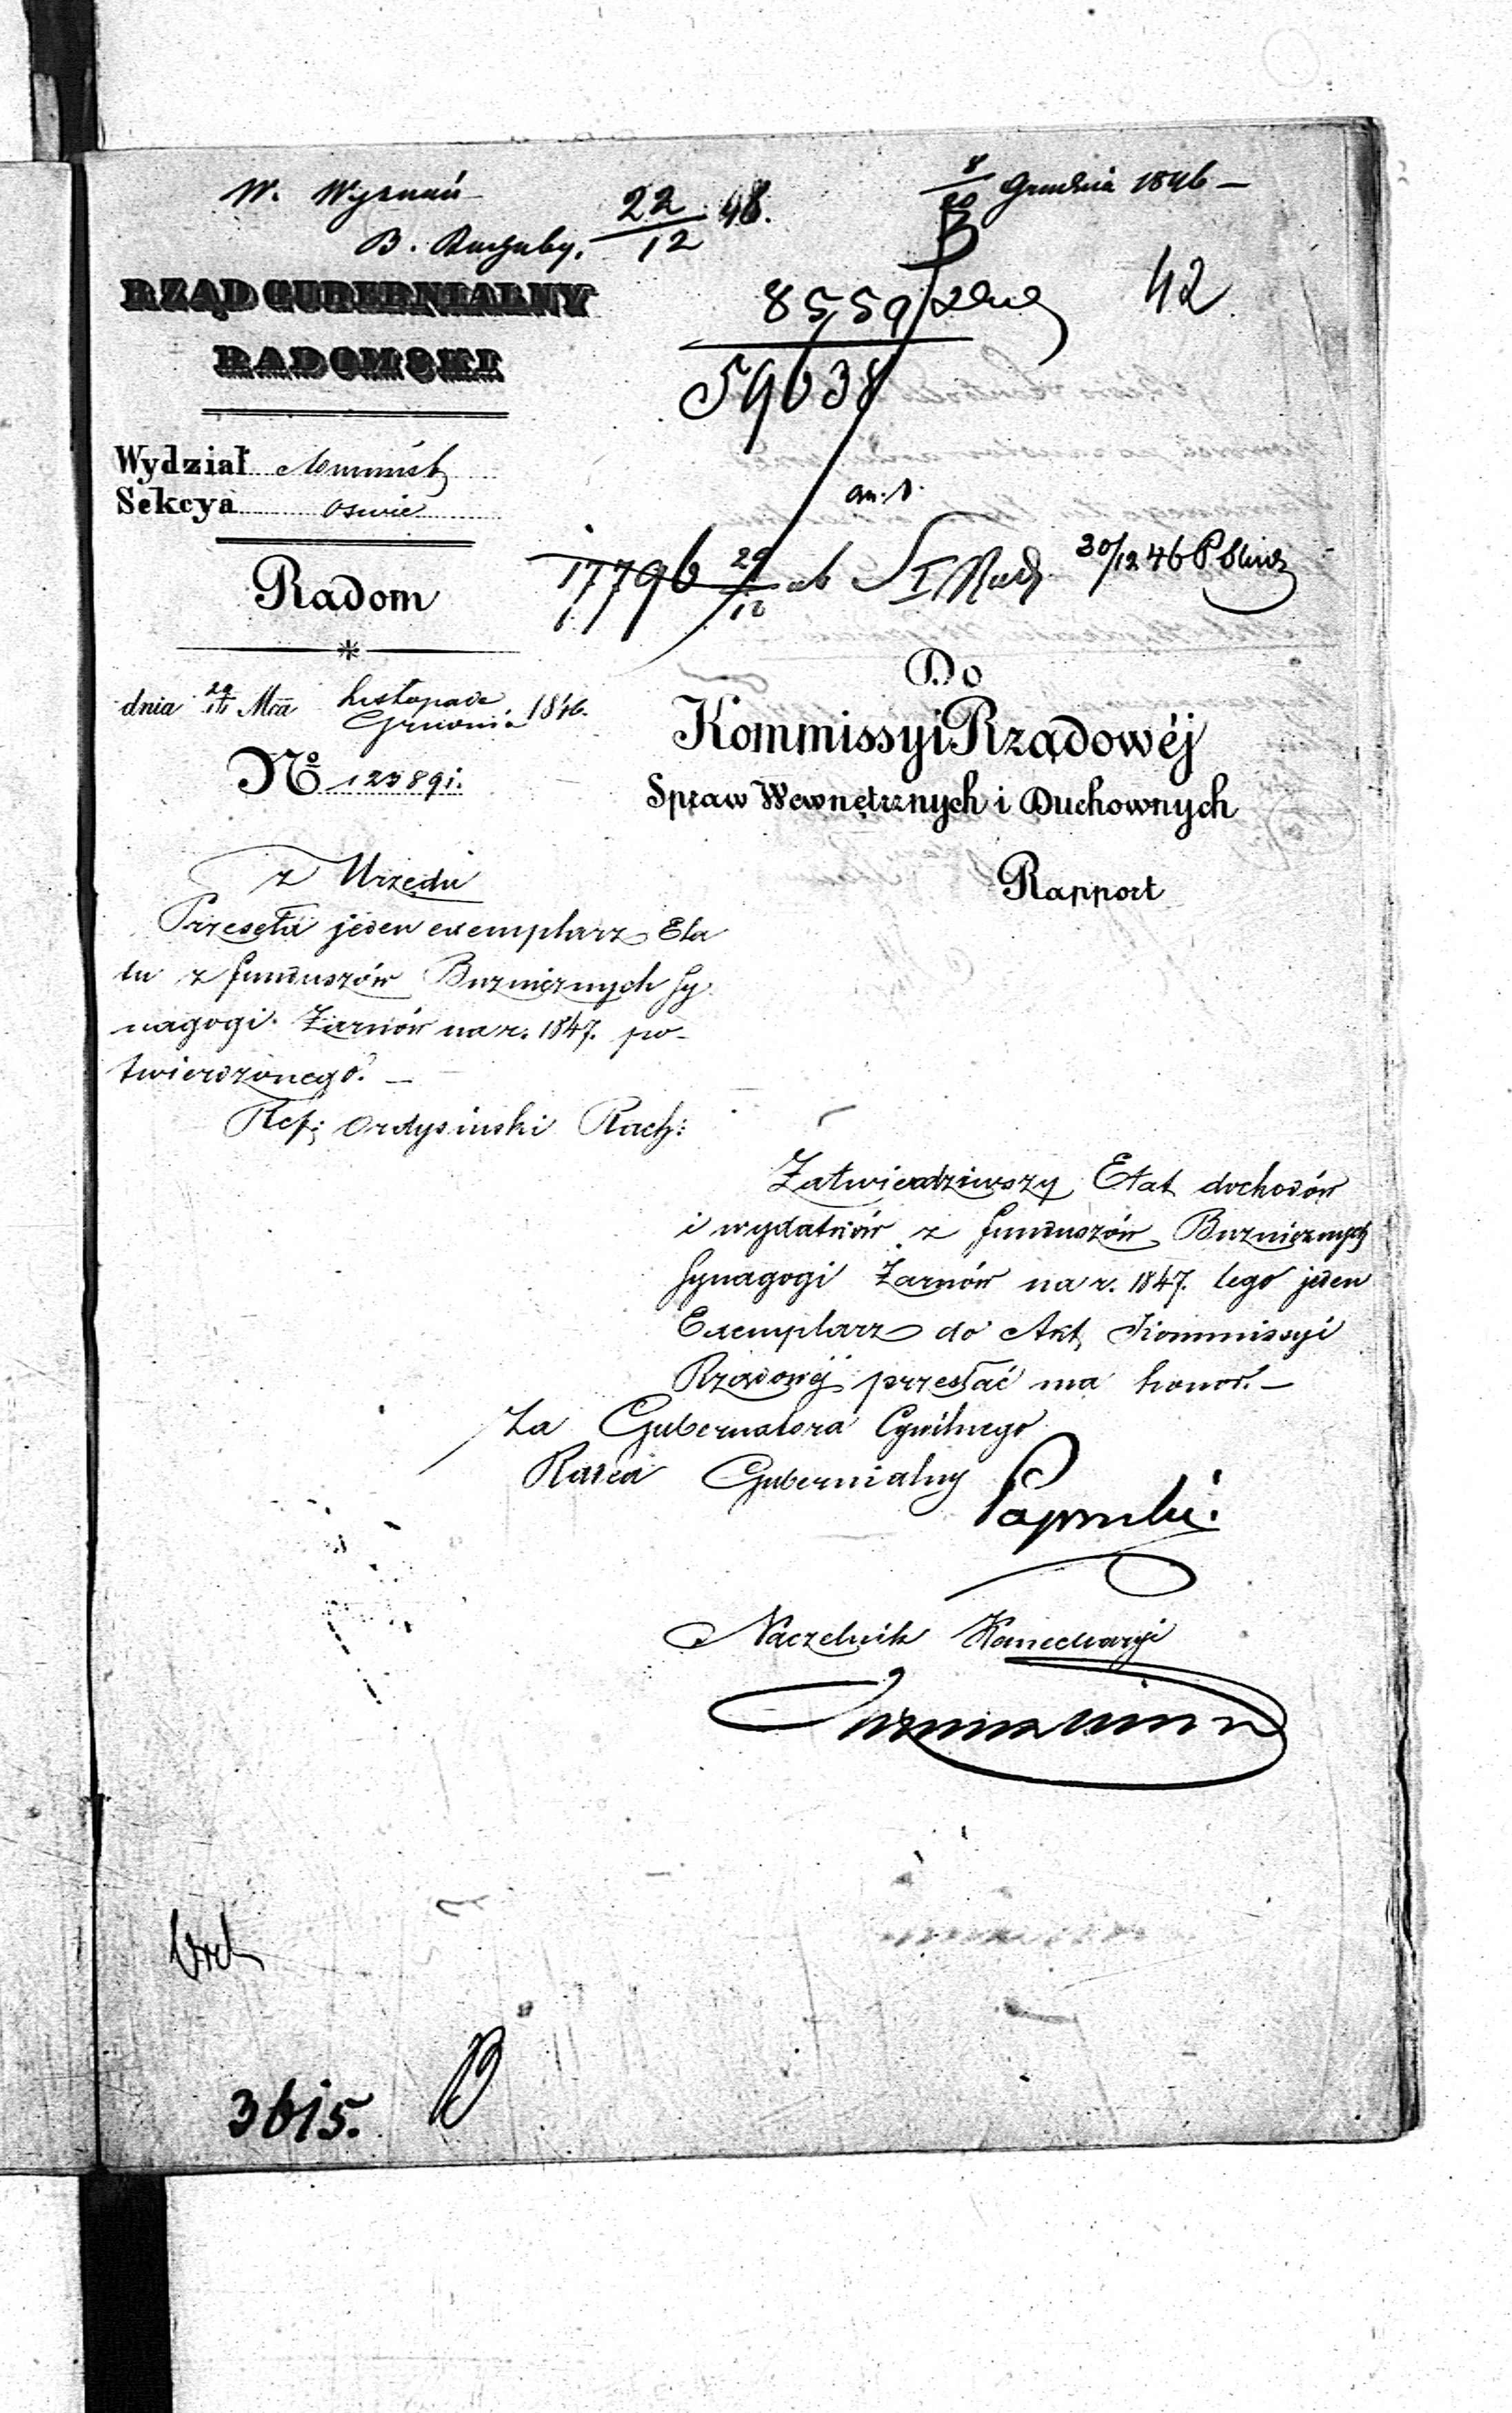 W. Wyznań
22/12 46.
8/20 Grudnia 1846 —
42
RZĄD GUBERNIALNY
RADOMSKI
8559
59638
Wydział
Sekcya Oświe
an. 1.
17796 29/12 ab
30/12 46
Radom
dnia 29/11 Mca Listopada
Grudnia 1846.
Nº 12589i.
Do
Kommissyi Rządowéj
Spraw Wewnętrznych i Duchownych
Rapport
z Urzędu
Przeseła jeden exemplarz Eta
tu z funduszów Bużnicznych Sy
nagogi Żarnów na r. 1847. po-
twierdzonego. —
Ref: Ordysinski Rach:
Zatwierdziwszy Etat dochodów
i wydatków z funduszów Bużnicznych
Synagogi Żarnów na r. 1847. tego jeden
Exemplarz do Akt Kommissyi
Rządowéj przesłać ma honor. —
Za Gubernatora Cywilnego
Radca Gubernialny
Naczelnik Kancellaryi
3615.